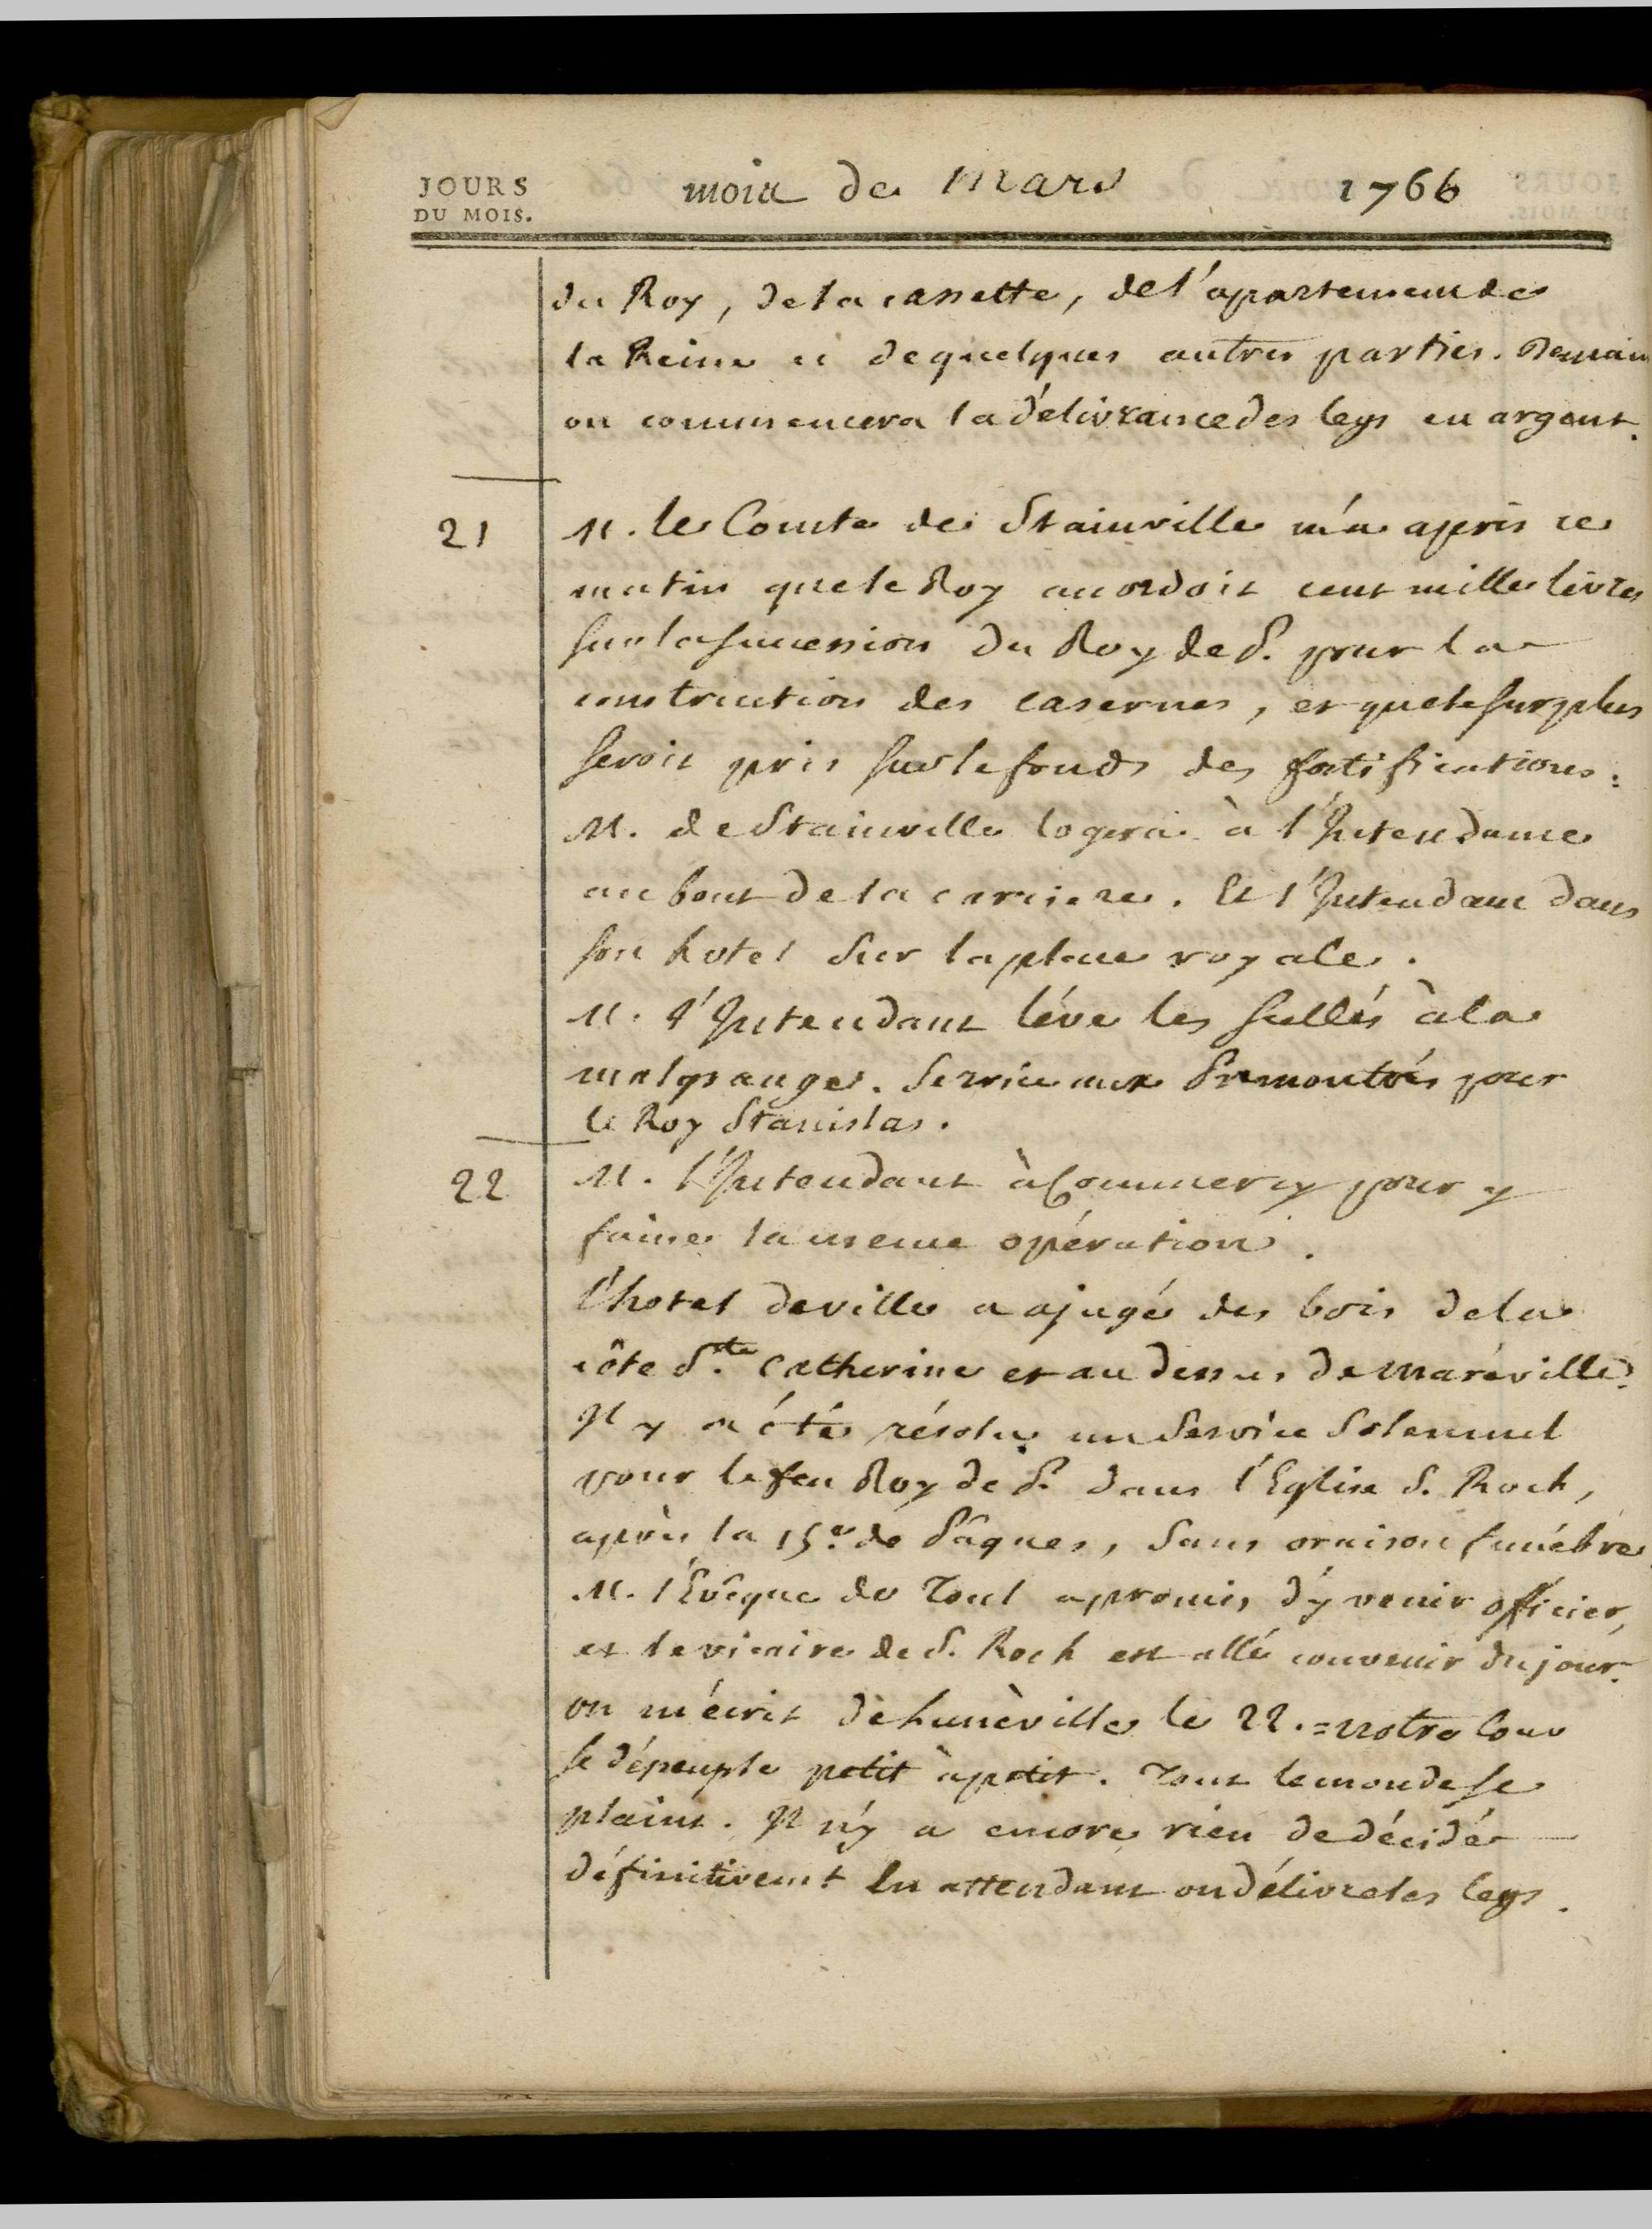 JOURS
DU MOIS.
mois de mars 1766
du Roy, de la cassette, de l'apartement de
la Reine et de quelques autres parties. Demain
on commencera la délivrance des legs en argent.
21
M. le Comte de Stainville m'a apris ce
matin que le Roy accordoit cent mille livres
sur la succession du Roy de P. pour la
construction des casernes, et que le surplus
seroit pris sur le fonds des fortifications :
M. de Stainville logera à l'Intendance
au bout de la carriere. Et l'Intendant dans
son hotel sur la place royale.
M. l'Intendant léve les scellés à la
malgrange. Service aux Prémontrés pour
le Roy Stanislas.
22
M. l'Intendant à Commercy pour y
faire la meme opération.
l'hotel de ville a ajugé des bois de la
côte S.te Catherine et au dessus de maréville.
Il y a été résolu un Service Solemnel
pour le feu Roy de P. dans l'Eglise S. Roch,
après la 15.e de Pâques, sans oraison funébre
M. l'Evêque de Toul a promis d'y venir officier,
et le vicaire de S. Roch est allé convenir du jour.
on m'écrit de Lunèville le 22. = notre Cour
se dépeuple petit à petit. Tout le monde se
plaint. Il n'y a encore rien de décidé
définitivemt En attendant on délivre les legs.